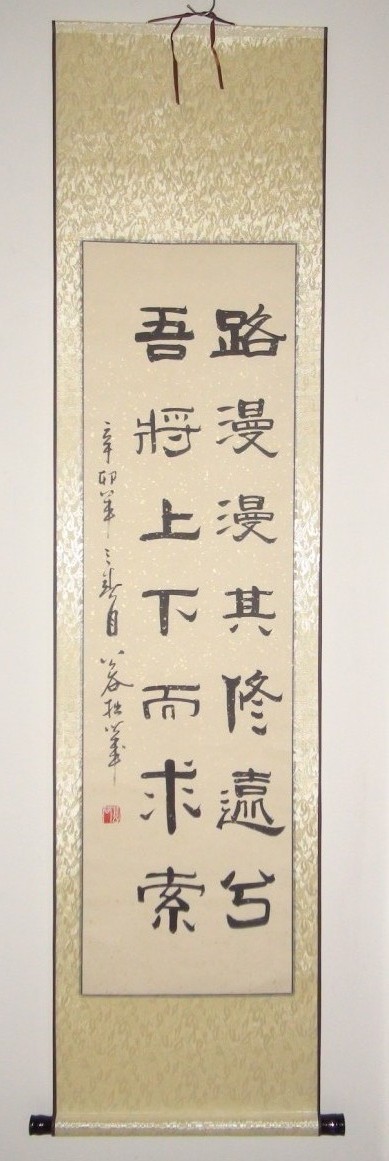 路漫漫其修遠兮
吾將上下而求索
辛卯年